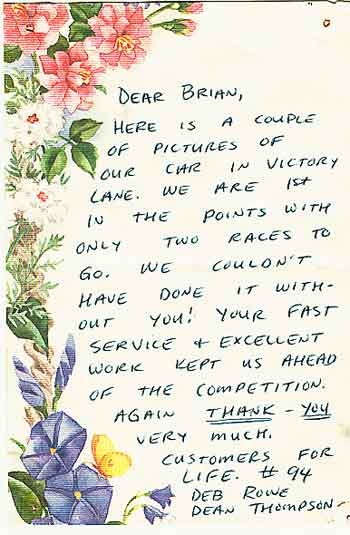 DEAR BRIAN,
HERE IS A COUPLE
OF PICTURES OF
OUR CAR IN VICTORY
LANE. WE ARE 1st
IN THE POINTS WITH
ONLY TWO RACES TO
GO. WE COULDN'T
HAVE DONE IT WITH-
OUT YOU! YOUR FAST
SERVICE & EXCELLENT
WORK KEPT US AHEAD
OF THE COMPETITION.
AGAIN THANK-YOU
VERY MUCH.
CUSTOMERS FOR
LIFE. #94
DEB ROWE
DEAN THOMPSON